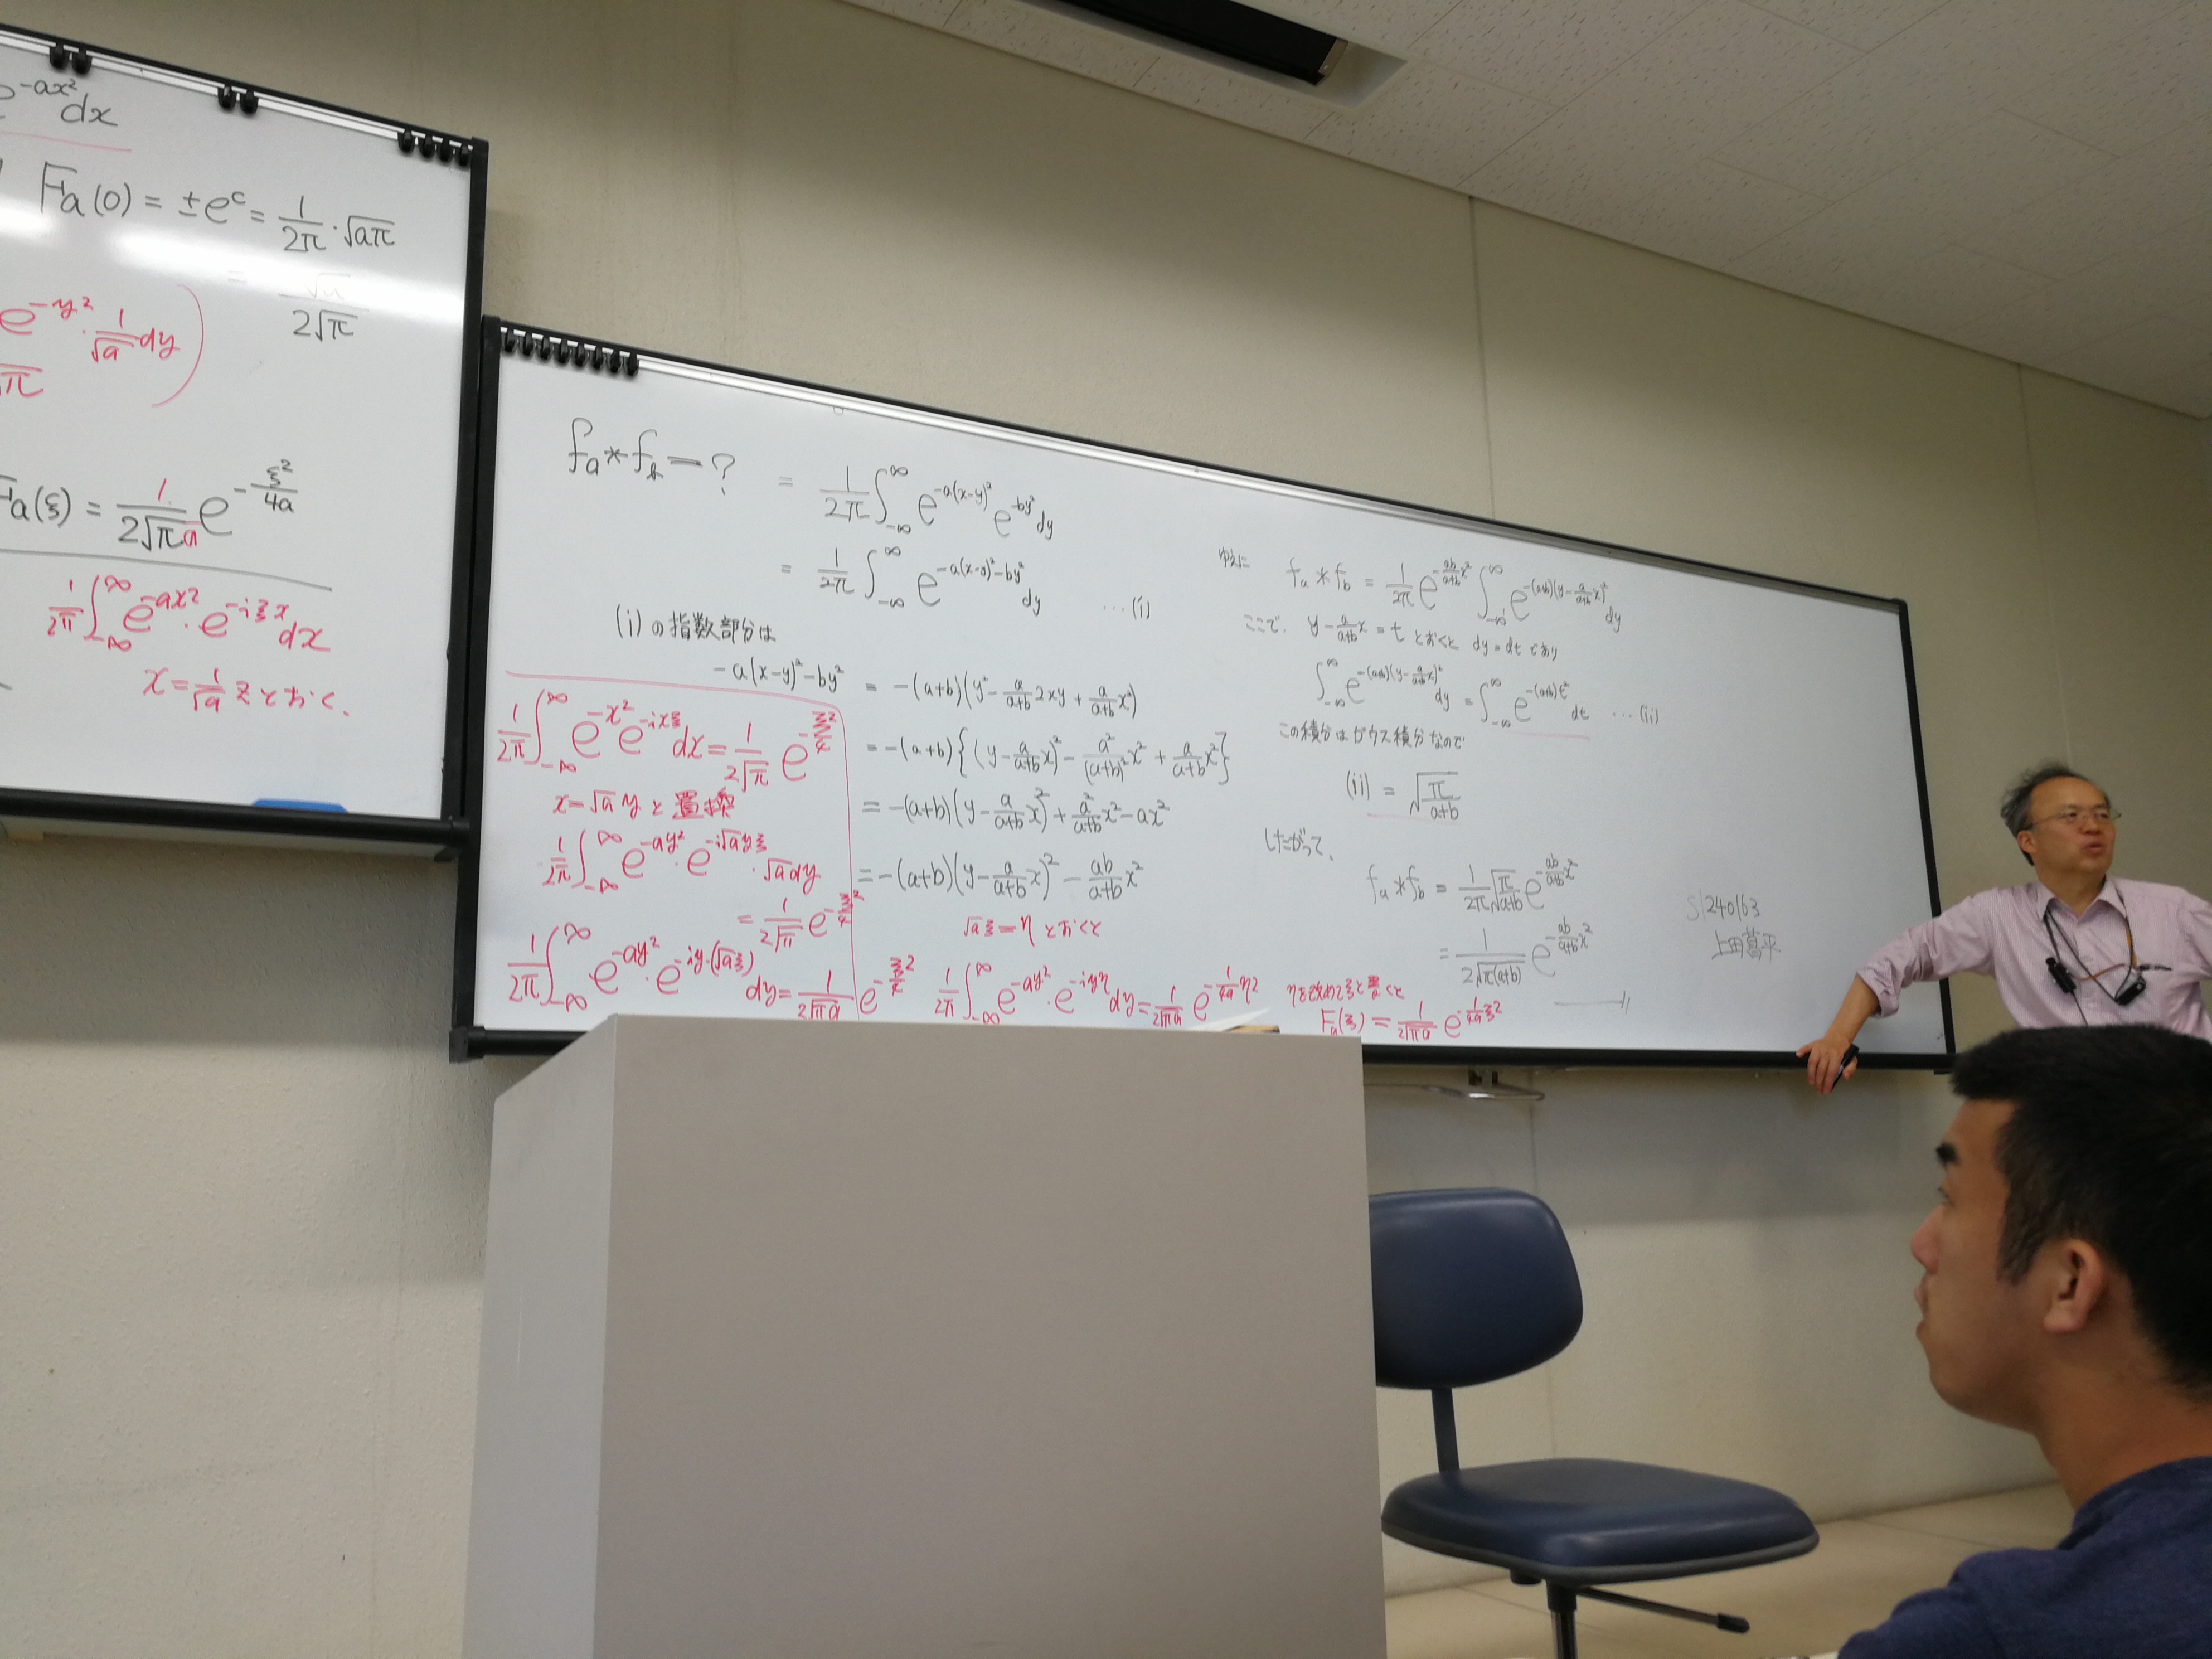 e^{-ax²}dx
Fa(0) = ±e^c = 1/2π・√aπ
2√π
e^{-y²}・1/√a dy)
√π
Fa(ξ) = 1/2√πa e^{-ξ²/4a}
1/2π ∫_{-∞}^{∞} e^{-ax²}・e^{-iξx}dx
x = 1/√a z とおく、
fa * fb = ? = 1/2π ∫_{-∞}^{∞} e^{-a(x-y)²} e^{-by²} dy
= 1/2π ∫_{-∞}^{∞} e^{-a(x-y)²-by²} dy …(i)
(i)の指数部分は
-a(x-y)²-by² = -(a+b)(y² - a/a+b 2xy + a/a+b x²)
= -(a+b){(y - a/a+b x)² - a²/(a+b)² x² + a/a+b x²}
= -(a+b)(y - a/a+b x)² + a²/a+b x² - ax²
= -(a+b)(y - a/a+b x)² - ab/a+b x²
1/2π ∫_{-∞}^{∞} e^{-x²} e^{-ixξ} dx = 1/2√π e^{-ξ²/4}
x = √a y と置換
1/2π ∫_{-∞}^{∞} e^{-ay²}・e^{-i√ayξ}・√a dy
= 1/2√π e^{-ξ²/4}
1/2π ∫_{-∞}^{∞} e^{-ay²}・e^{-iy・(√aξ)} dy = 1/2√πa e^{-ξ²/4}
√aξ = η とおくと
1/2π ∫_{-∞}^{∞} e^{-ay²}・e^{-iyη} dy = 1/2√πa e^{-1/4a η²}
ηを改めてξと置くと
Fa(ξ) = 1/2√πa e^{-1/4a ξ²}
ゆえに fa * fb = 1/2π e^{-ab/a+b x²} ∫_{-∞}^{∞} e^{-(a+b)(y - a/a+b x)²} dy
ここで、 y - a/a+b x = t とおくと dy = dt であり
∫_{-∞}^{∞} e^{-(a+b)(y - a/a+b x)²} dy = ∫_{-∞}^{∞} e^{-(a+b)t²} dt …(ii)
この積分はガウス積分なので
(ii) = √π/a+b
したがって、
fa * fb = 1/2π √π/a+b e^{-ab/a+b x²}
= 1/2√π(a+b) e^{-ab/a+b x²}
S1240163